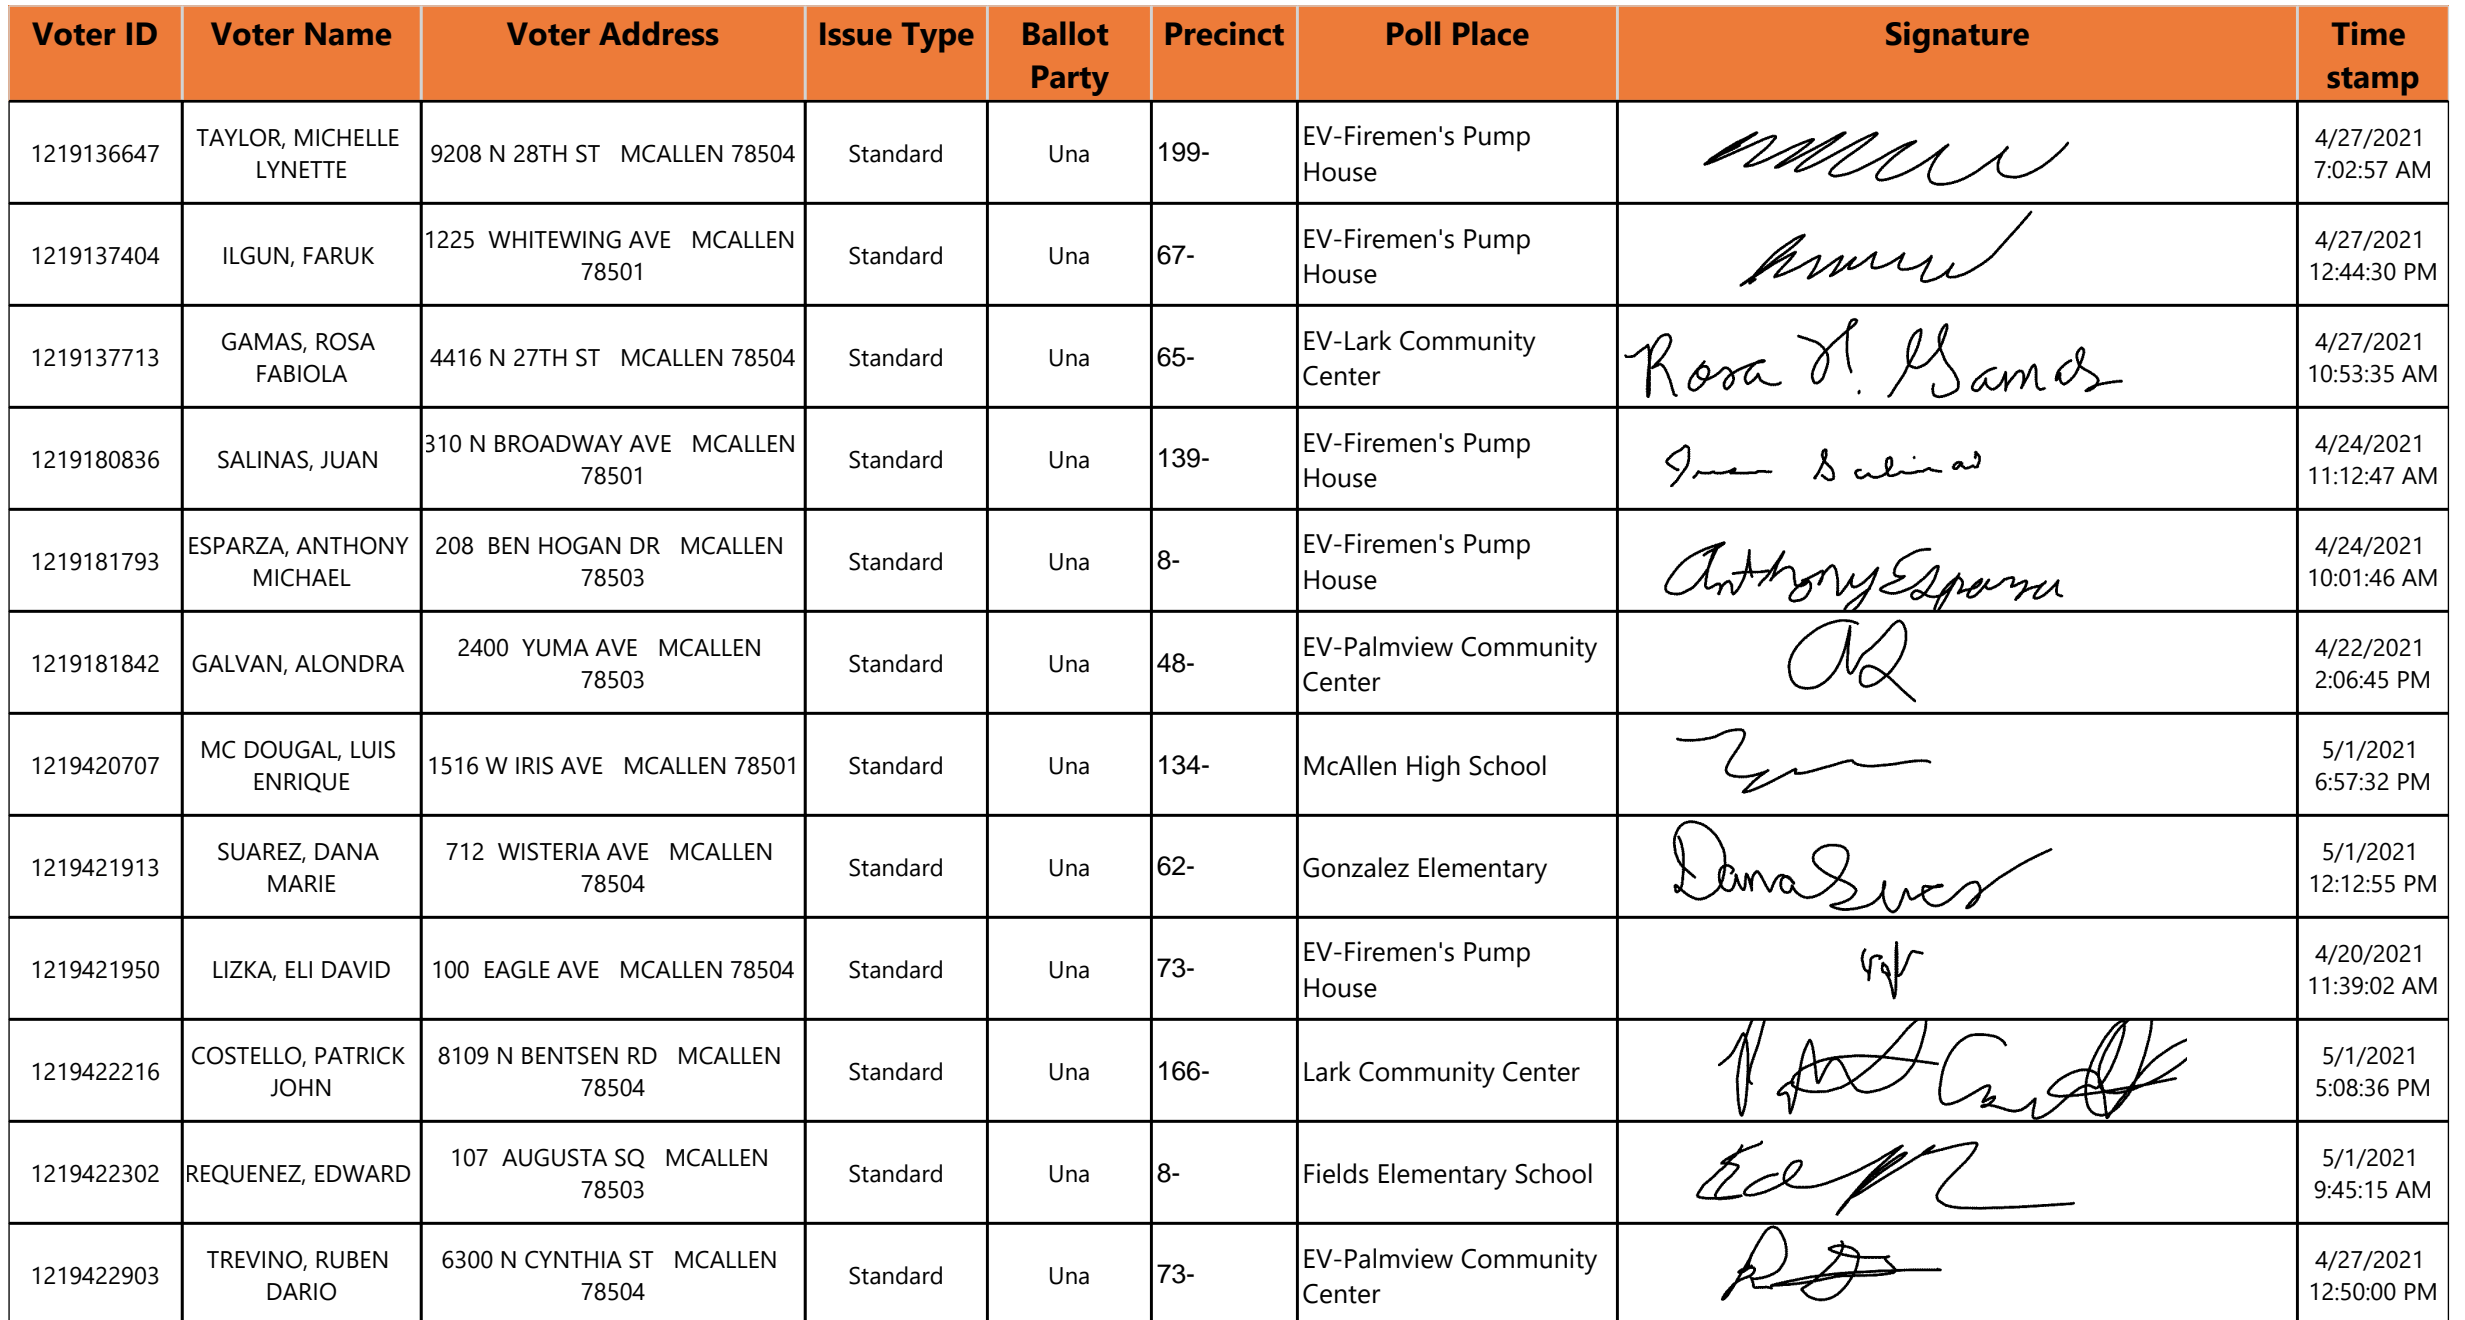 Voter ID Voter Name Voter Address Issue Type Ballot Party Precinct Poll Place Signature Time stamp
1219136647 TAYLOR, MICHELLE LYNETTE 9208 N 28TH ST MCALLEN 78504 Standard Una 199- EV-Firemen's Pump House 4/27/2021 7:02:57 AM
1219137404 ILGUN, FARUK 1225 WHITEWING AVE MCALLEN 78501 Standard Una 67- EV-Firemen's Pump House 4/27/2021 12:44:30 PM
1219137713 GAMAS, ROSA FABIOLA 4416 N 27TH ST MCALLEN 78504 Standard Una 65- EV-Lark Community Center Rosa Gamas 4/27/2021 10:53:35 AM
1219180836 SALINAS, JUAN 310 N BROADWAY AVE MCALLEN 78501 Standard Una 139- EV-Firemen's Pump House Juan Salinas 4/24/2021 11:12:47 AM
1219181793 ESPARZA, ANTHONY MICHAEL 208 BEN HOGAN DR MCALLEN 78503 Standard Una 8- EV-Firemen's Pump House Anthony Esparza 4/24/2021 10:01:46 AM
1219181842 GALVAN, ALONDRA 2400 YUMA AVE MCALLEN 78503 Standard Una 48- EV-Palmview Community Center 4/22/2021 2:06:45 PM
1219420707 MC DOUGAL, LUIS ENRIQUE 1516 W IRIS AVE MCALLEN 78501 Standard Una 134- McAllen High School 5/1/2021 6:57:32 PM
1219421913 SUAREZ, DANA MARIE 712 WISTERIA AVE MCALLEN 78504 Standard Una 62- Gonzalez Elementary Dana 5/1/2021 12:12:55 PM
1219421950 LIZKA, ELI DAVID 100 EAGLE AVE MCALLEN 78504 Standard Una 73- EV-Firemen's Pump House 4/20/2021 11:39:02 AM
1219422216 COSTELLO, PATRICK JOHN 8109 N BENTSEN RD MCALLEN 78504 Standard Una 166- Lark Community Center 5/1/2021 5:08:36 PM
1219422302 REQUENEZ, EDWARD 107 AUGUSTA SQ MCALLEN 78503 Standard Una 8- Fields Elementary School Ed 5/1/2021 9:45:15 AM
1219422903 TREVINO, RUBEN DARIO 6300 N CYNTHIA ST MCALLEN 78504 Standard Una 73- EV-Palmview Community Center 4/27/2021 12:50:00 PM